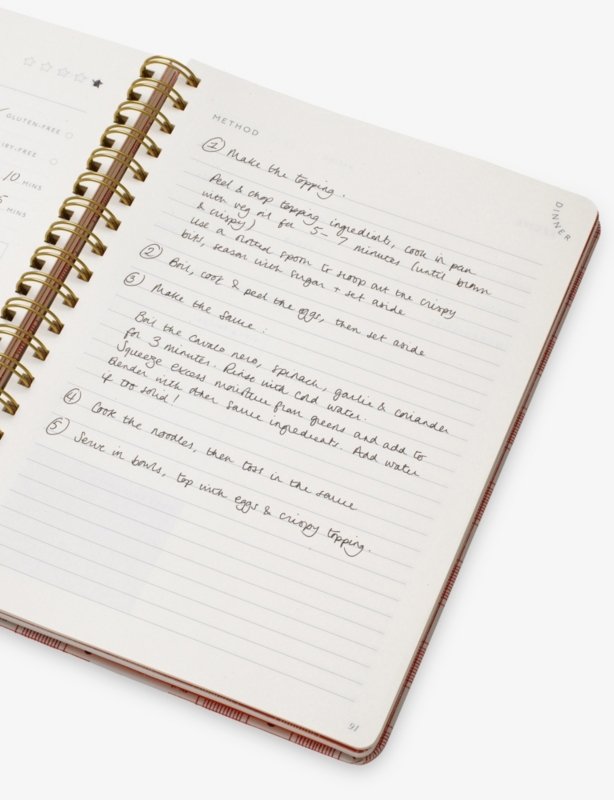 GLUTEN-FREE
IRY-FREE
10 MINS
5 MINS
METHOD
DINNER
① Make the topping.
Peel & chop topping ingredients, cook in pan
with veg oil for 5-7 minutes (until brown
& crispy)
Use a slotted spoon to scoop out the crispy
bits, season with sugar + set aside
② Boil, cook & peel the eggs, then set aside
③ Make the sauce:
Boil the cavalo nero, spinach, garlic & coriander
for 3 minutes. Rinse with cold water.
Squeeze excess moisture from greens and add to
blender with other sauce ingredients. Add water
if too solid!
④ Cook the noodles, then toss in the sauce
⑤ Serve in bowls, top with eggs & crispy topping.
91